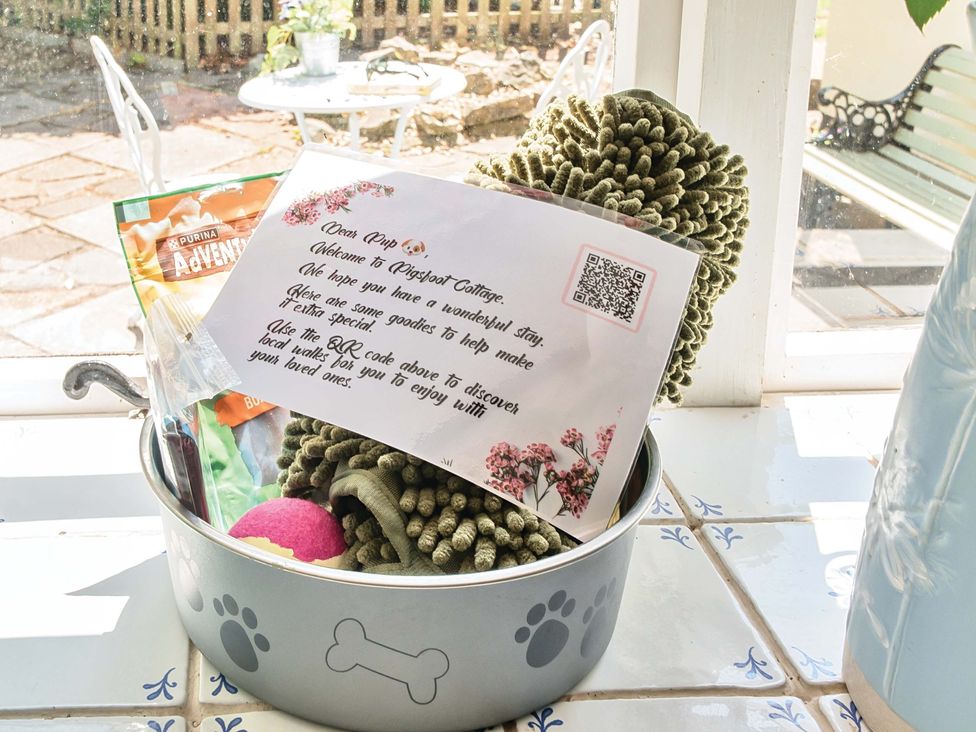 PURINA
AdVENT
Dear Pup 🐶,
Welcome to Pigsfoot Cottage.
We hope you have a wonderful stay.
Here are some goodies to help make
it extra special.
Use the QR code above to discover
local walks for you to enjoy with
your loved ones.